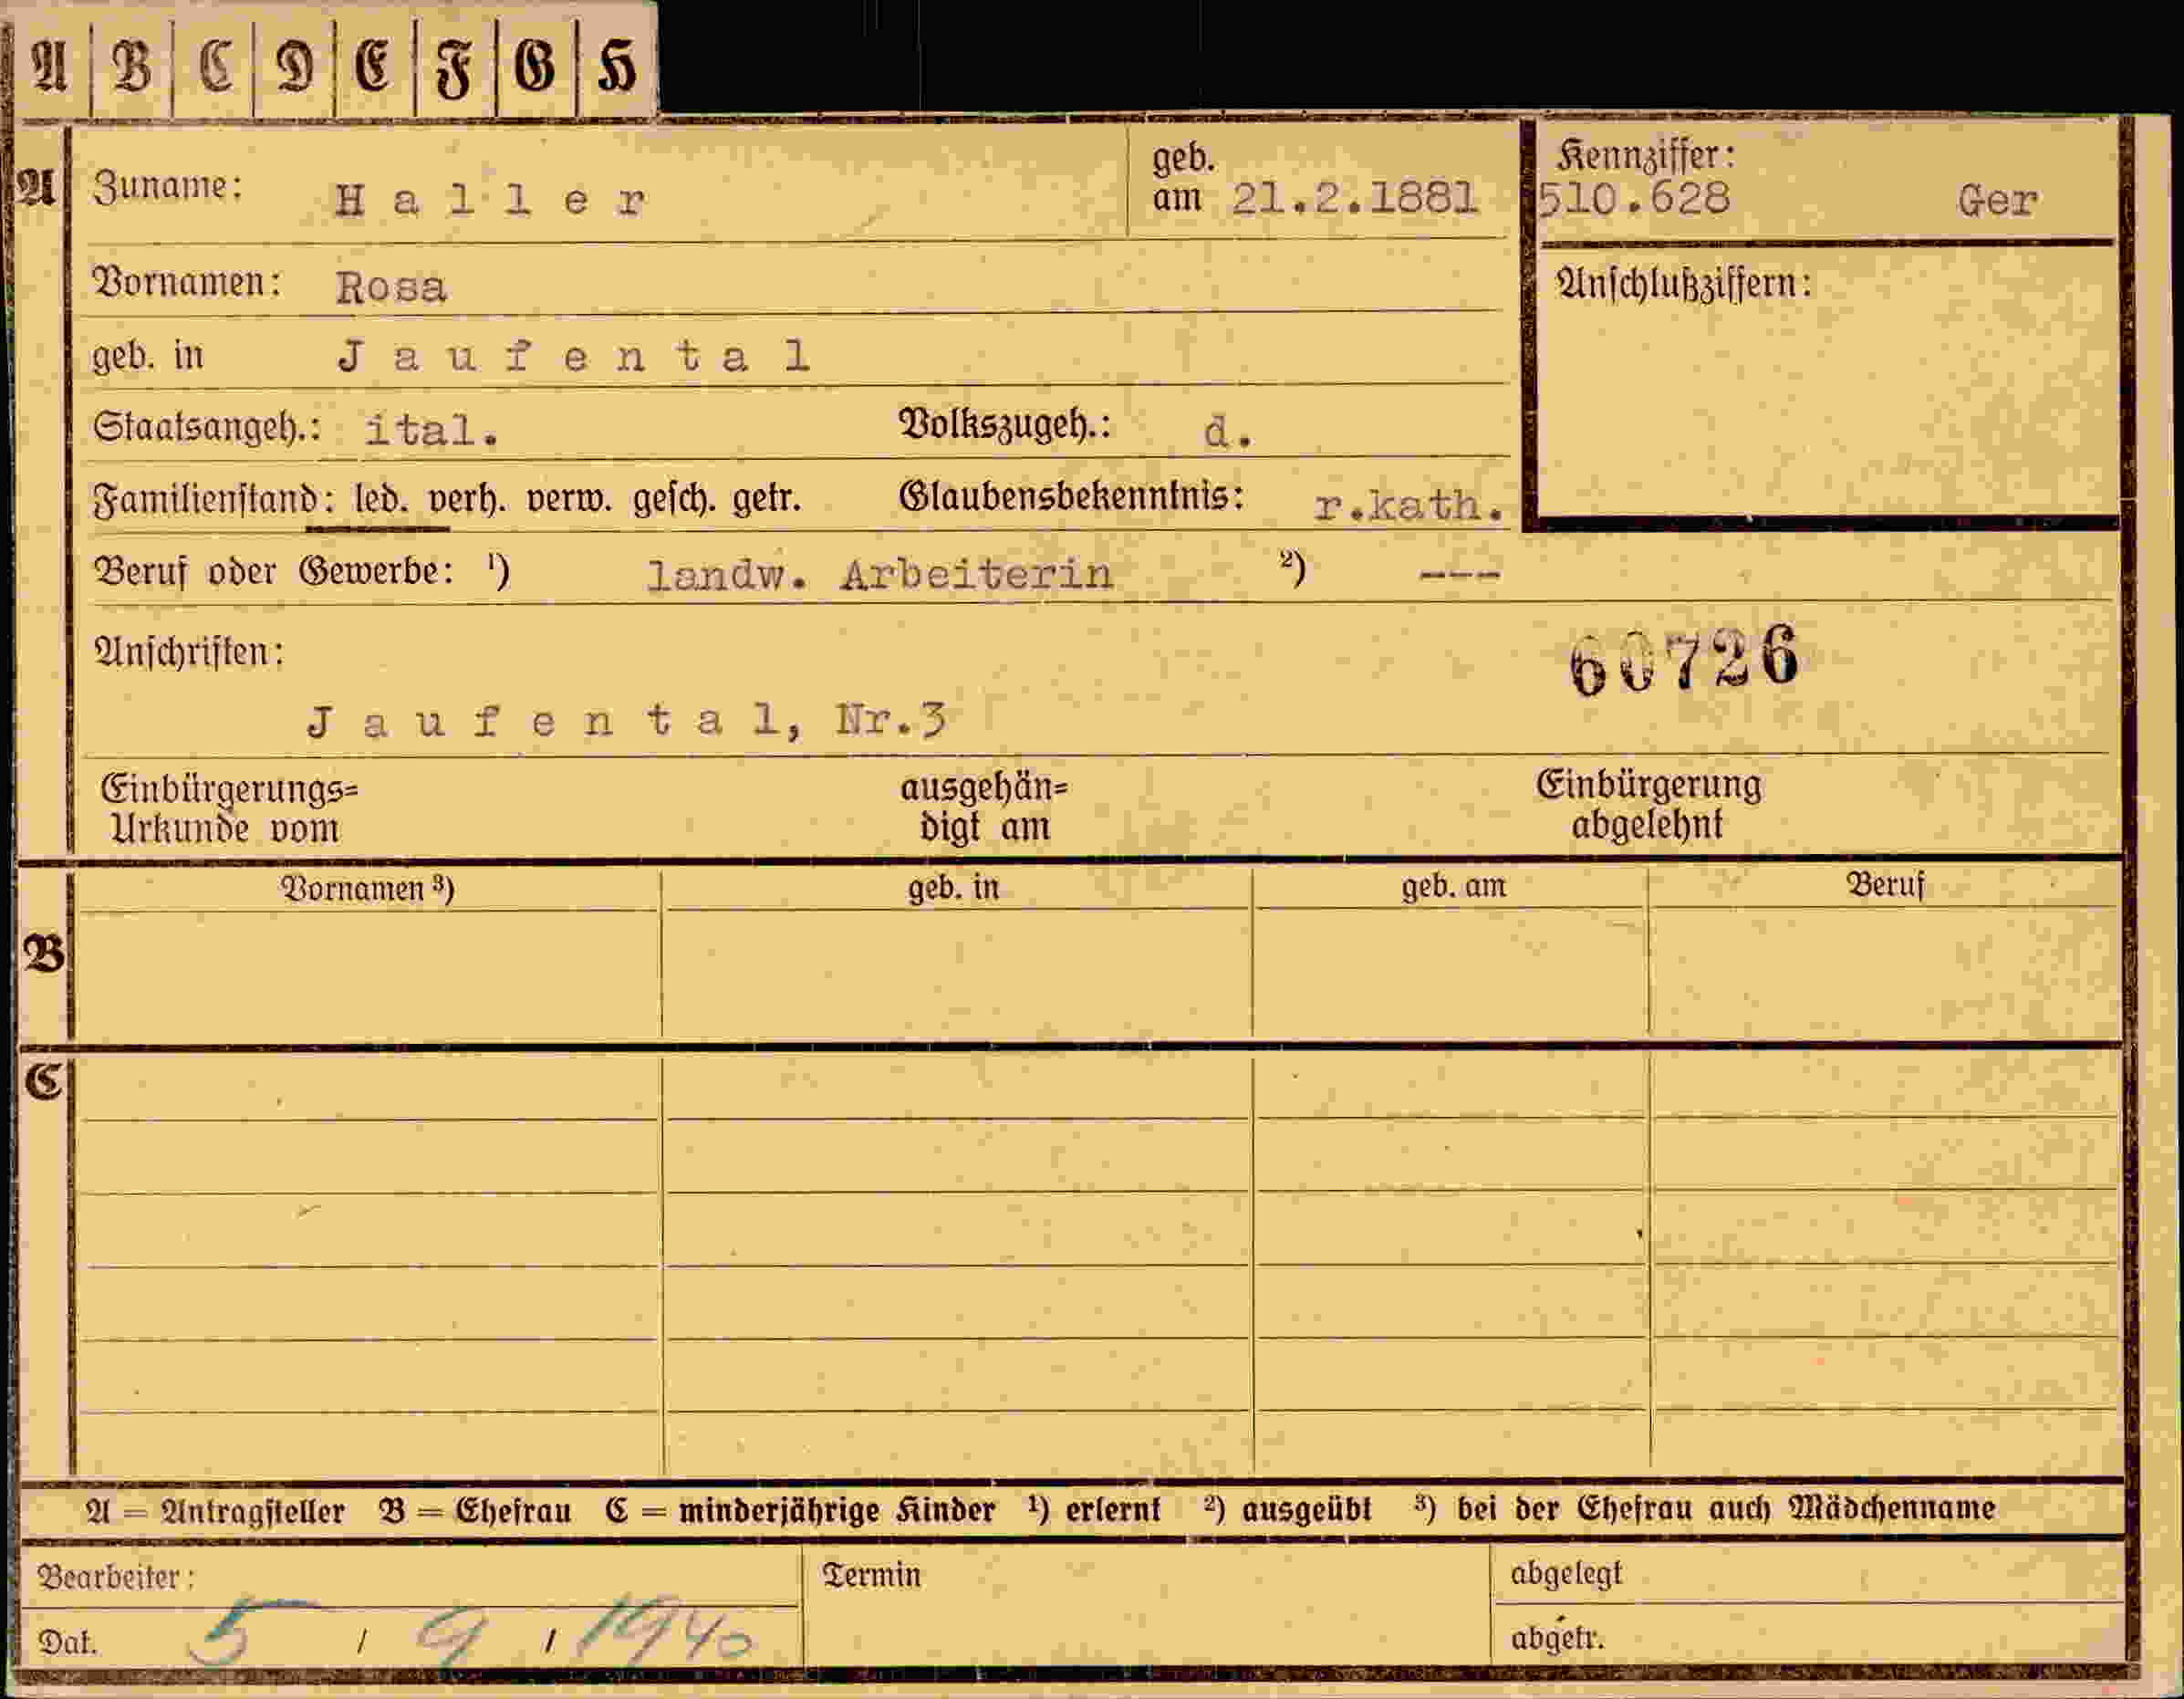 A B C D E F G H
A Zuname: Haller geb. am 21.2.1881 Kennziffer: 510.628 Ger
Vornamen: Rosa Anschlußziffern:
geb. in Jaufental
Staatsangeh.: ital. Volkszugeh.: d.
Familienstand: led. verh. verw. gesch. getr. Glaubensbekenntnis: r.kath.
Beruf oder Gewerbe: ¹) landw. Arbeiterin ²) ---
Anschriften: 60726
Jaufental, Nr.3
Einbürgerungs= ausgehän= Einbürgerung
Urkunde vom digt am abgelehnt
Vornamen ³) geb. in geb. am Beruf
B
C
A = Antragsteller B = Ehefrau C = minderjährige Kinder ¹) erlernt ²) ausgeübt ³) bei der Ehefrau auch Mädchenname
Bearbeiter: Termin abgelegt
Dat. 5 / 9 / 1940 abgetr.